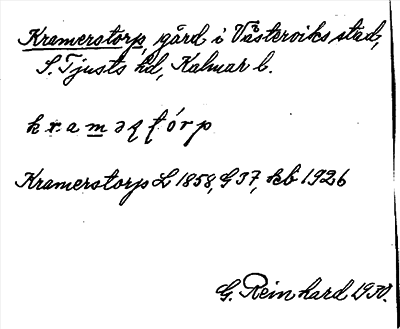 Kramerstorp, gård i Västerviks stad,
S. Tjusts hd, Kalmar l.
Kramerstorp L 1858, G 37, kb 1926
G. Reinhard 1930.